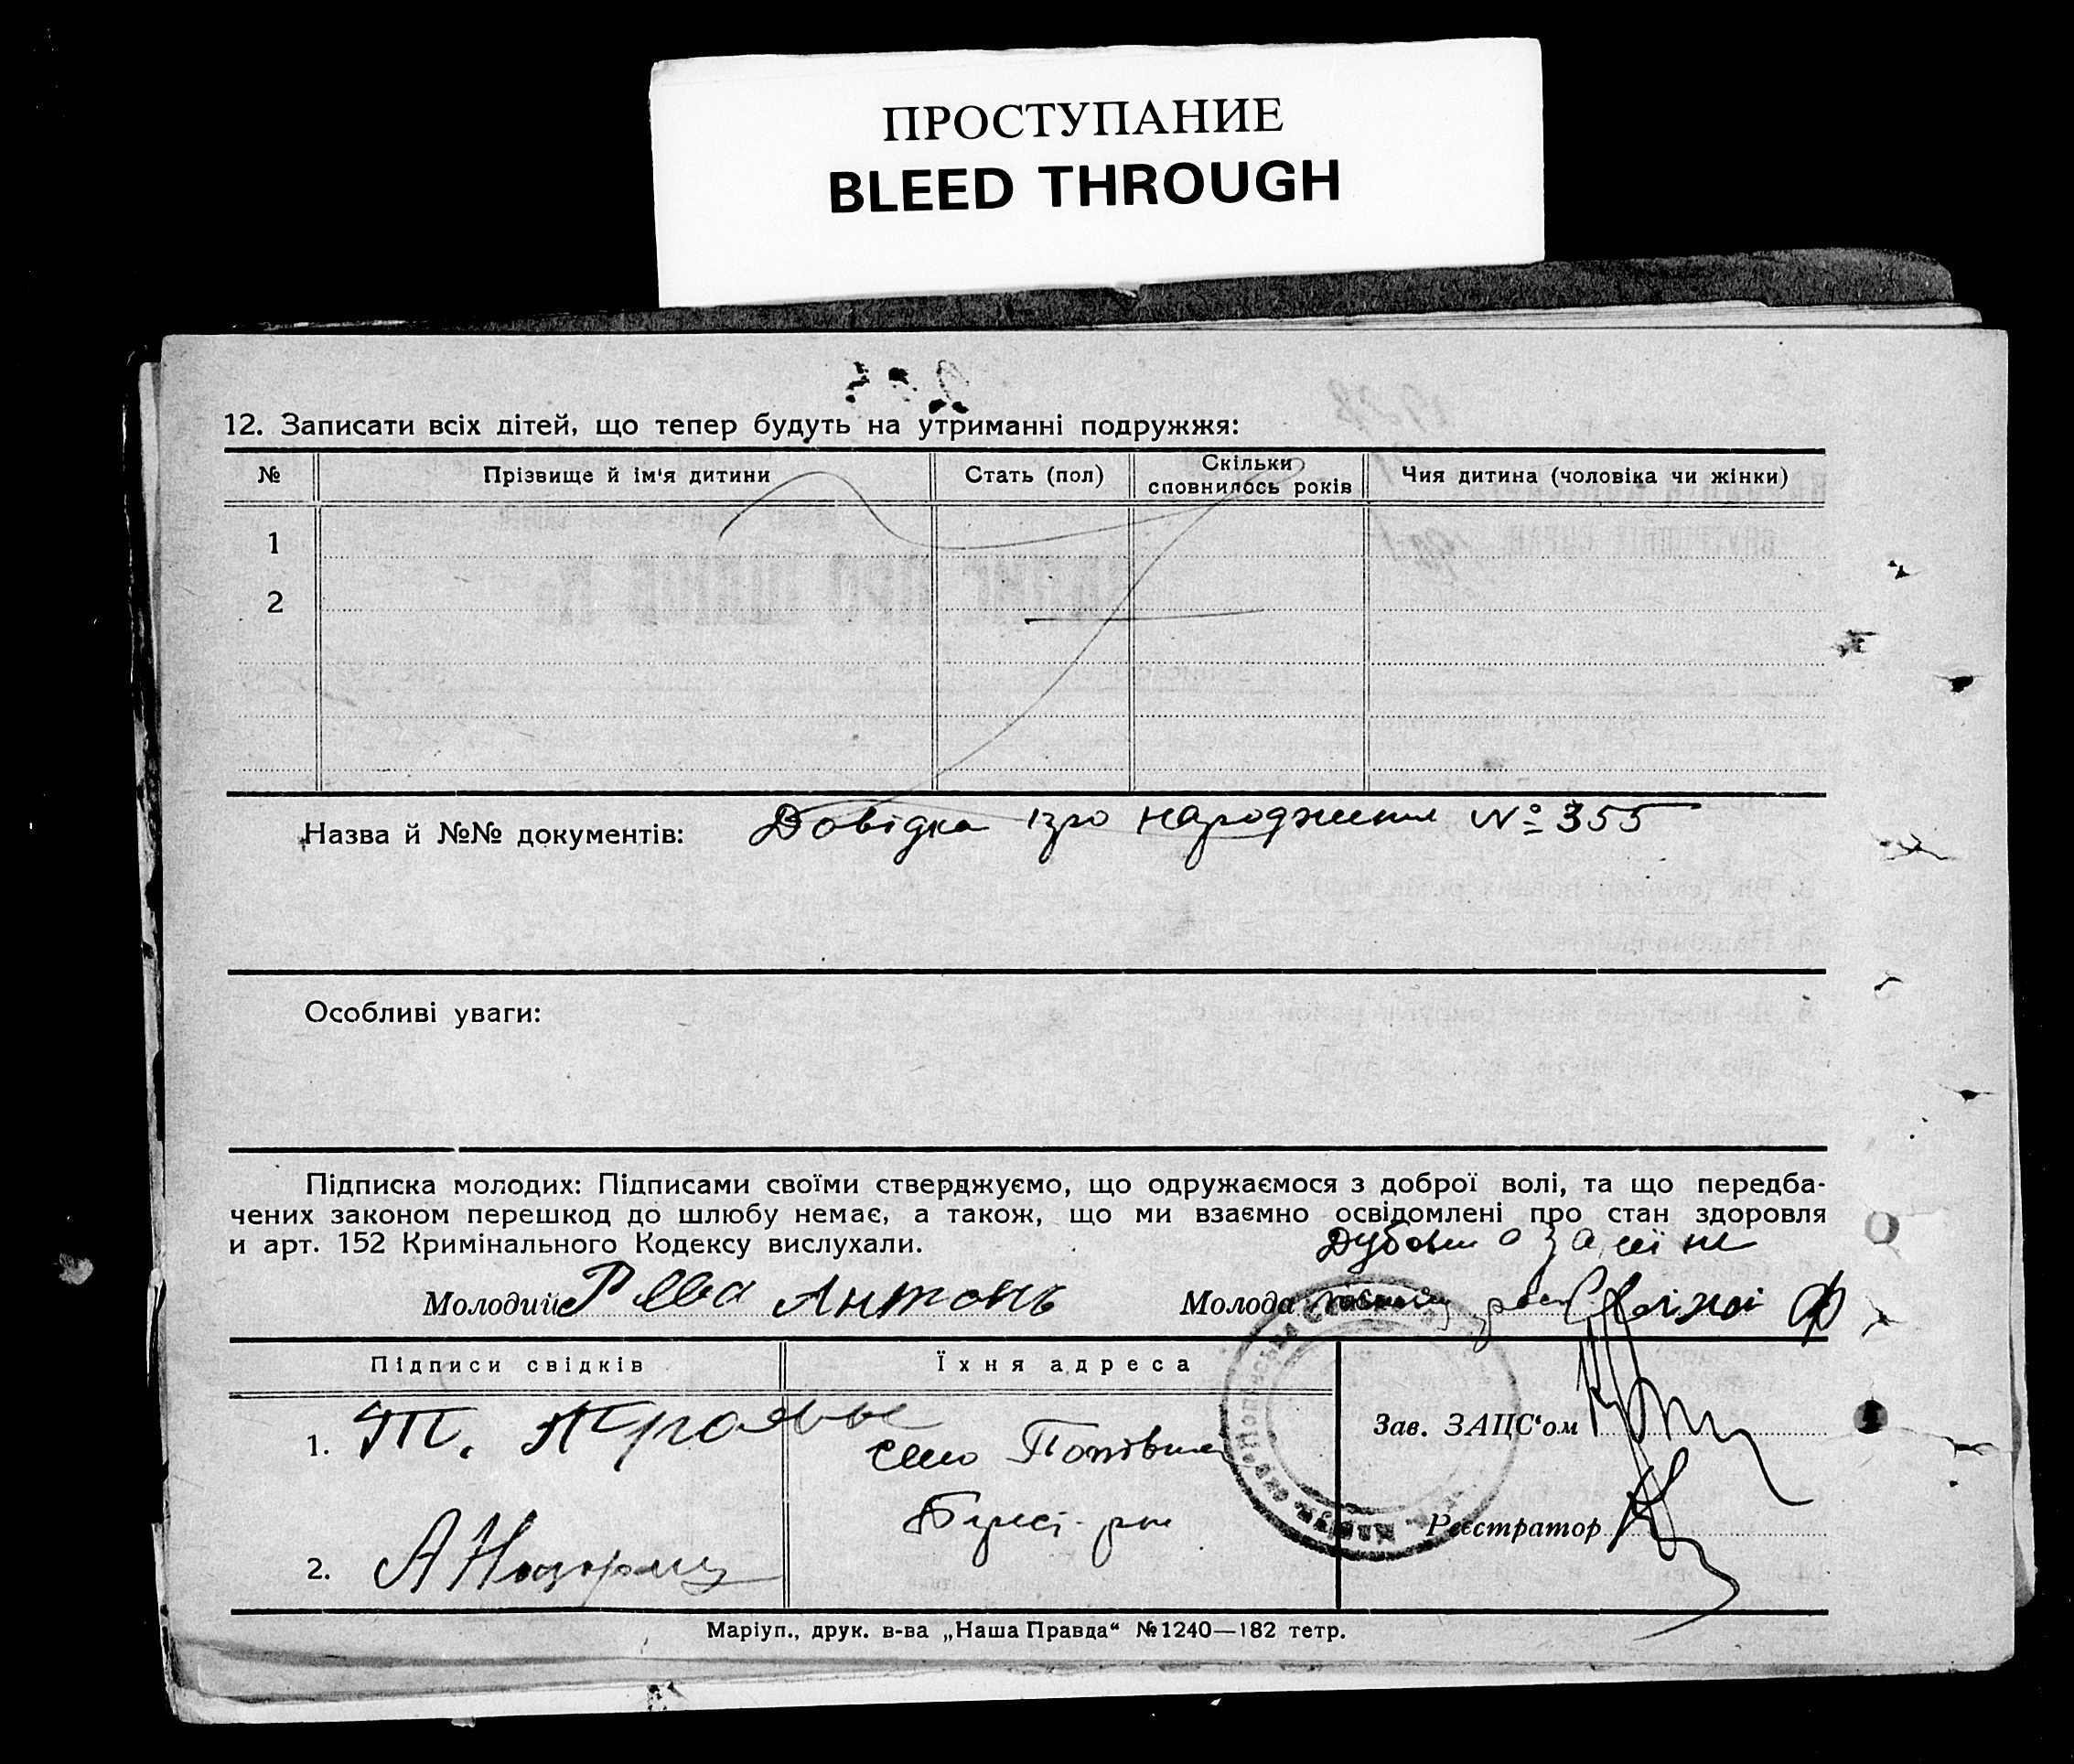 ПРОСТУПАНИЕ
BLEED THROUGH
12. Записати всіх дітей, що тепер будуть на утриманні подружжя:
№ Прізвище й ім'я дитини Стать (пол) Скільки сповнилось років Чия дитина (чоловіка чи жінки)
1
2
Назва й №№ документів: Довідка про народження № 355
Особливі уваги:
Підписка молодих: Підписами своїми стверджуємо, що одружаємося з доброї волі, та що передба-
чених законом перешкод до шлюбу немає, а також, що ми взаємно освідомлені про стан здоровля
и арт. 152 Кримінального Кодексу вислухали.
Молодий Рева Антонь Молода
Підписи свідків Їхня адреса
1. село
Зав. ЗАЦС'ом
Реєстратор
2.
Маріуп., друк. в-ва „Наша Правда“ №1240—182 тетр.